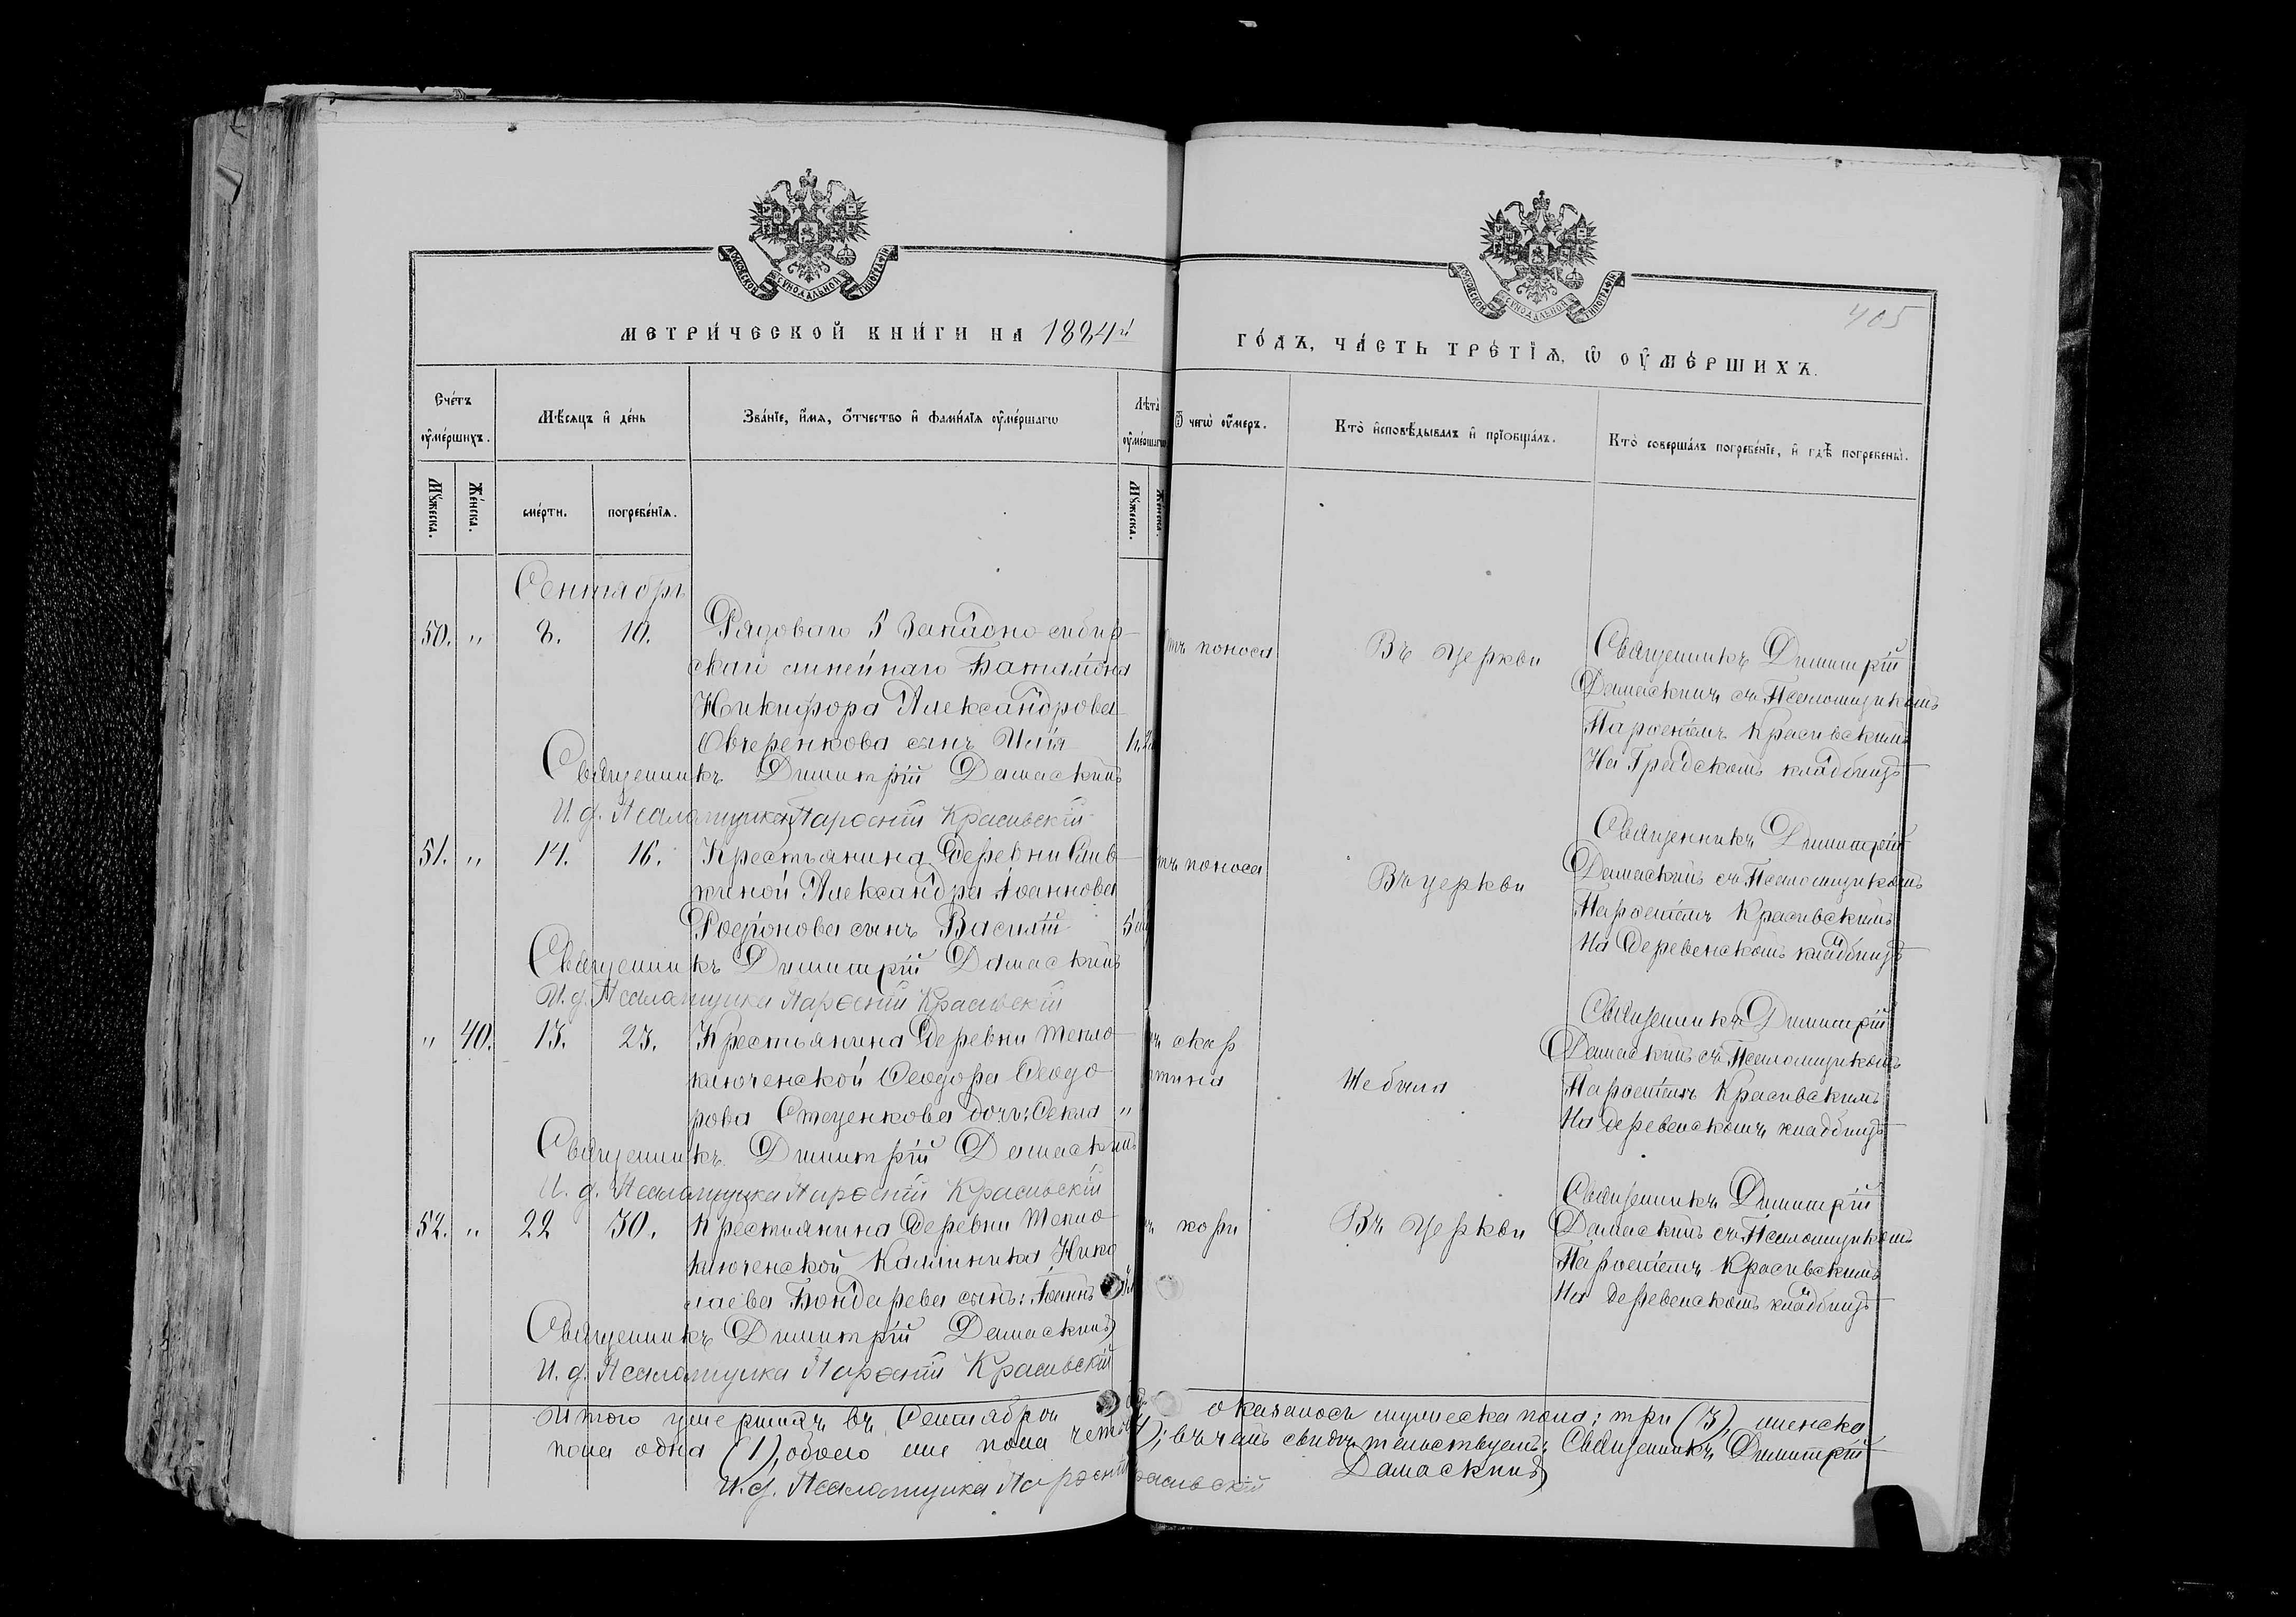 МОСКОВСКОЙ СУНОДАЛЬНОЙ ТИПОГРАФІИ
МОСКОВСКОЙ СУНОДАЛЬНОЙ ТИПОГРАФІИ
405
МЕТРИ́ЧЕСКОЙ КНИ́ГИ НА 1884й
ГО́ДЪ, ЧА́СТЬ ТРЕ́ТІѦ, Ѡ ОУМЕ́РШИХЪ.
Сче́тъ оуме́ршихъ.
Мѣ́сяцъ и де́нь
Зва́ніе, и́мя, о́тчество и фами́лія оуме́ршагѡ
Лѣта̀ оуме́ршагѡ
Ѿ чегѡ̀ оу́меръ.
Кто̀ исповѣ́дывалъ и пріобща́лъ.
Кто̀ соверша́лъ погребе́ніе, и гдѣ̀ погребены̀.
Му́жеска.
Же́нска.
сме́рти.
погребе́нія.
Му́жеска.
Же́нска.
Сентябрь
50. " 8. 10. Рядоваго 5 Западно сибир
скаго линейнаго Баталіона
Никифора Александрова
Овчеренкова сынъ Илія
отъ поноса
Въ церкви
Священникъ Димитрій
Дамаскинъ съ Псаломщикомъ
Парѳеніемъ Красивскимъ
На Градскомъ кладбищѣ
Священникъ Димитрій Дамаскинъ
И. д. Псаломщика Парѳеній Красивскій
51. " 14. 16. Крестьянина Деревни
Александра Іоаннова
Родіонова сынъ Василій
отъ поноса
Въ церкви
Священникъ Димитрій
Дамаскинъ съ Псаломщикомъ
Парѳеніемъ Красивскимъ
На Деревенскомъ кладбищѣ
Священникъ Димитрій Дамаскинъ
И. д. Псаломщика Парѳеній Красивскій
" 40. 13. 23. Крестьянина Деревни Тепло
ключенской Ѳеодора Ѳеодо
рова Стеценкова дочь: Ѳекла "
скар
латина
Не была
Священникъ Димитрій
Дамаскинъ съ Псаломщикомъ
Парѳеніемъ Красивскимъ
На деревенскомъ кладбищѣ
Священникъ Димитрій Дамаскинъ
И. д. Псаломщика Парѳеній Красивскій
52. " 22 30. Крестьянина Деревни Тепло
ключенской Каллиника Нико
лаева Бондарева сынъ: Іоаннъ
кори
Въ Церкви
Священникъ Димитрій
Дамаскинъ съ Псаломщикомъ
Парѳеніемъ Красивскимъ
На деревенскомъ кладбищѣ
Священникъ Димитрій Дамаскинъ
И. д. Псаломщика Парѳеній Красивскій
Итого умершихъ въ Сентябрѣ оказалось мужеска пола: три (3), женска
пола одна (1), обоего же пола; въ чемъ свидѣтельствуемъ: Священникъ Димитрій
Дамаскинъ
И. д. Псаломщика Парѳеній